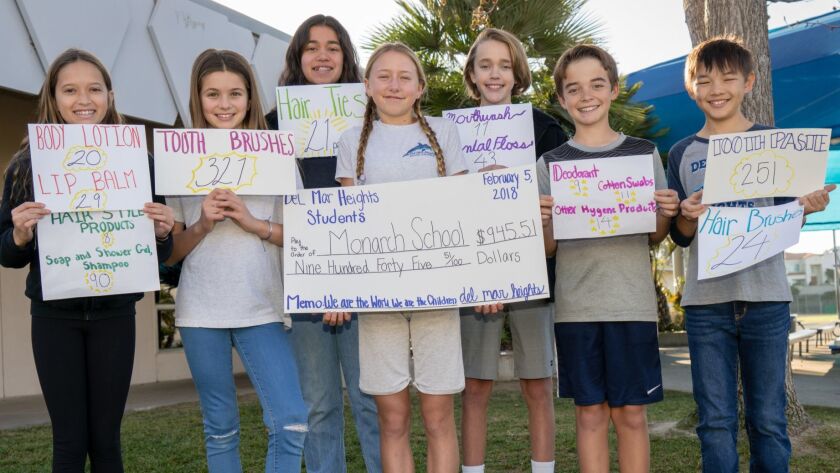 BODY LOTION
20
LIP BALM
29
HAIR STYLE
PRODUCTS
8
Soap and Shower Gel,
Shampoo
90
TOOTH BRUSHES
327
Hair Ties
21
Mouthwash
17
43
Deodorant
Cotton Swabs
11
Other Hygene Products
14
TOOTH PASTE
251
Hair Brushes
24
Del Mar Heights
Students
February 5,
2018
Pay to the
order of
Monarch School
$945.51
Nine Hundred Forty Five 51/100 Dollars
Memo: We are the World, We are the Children
del mar heights